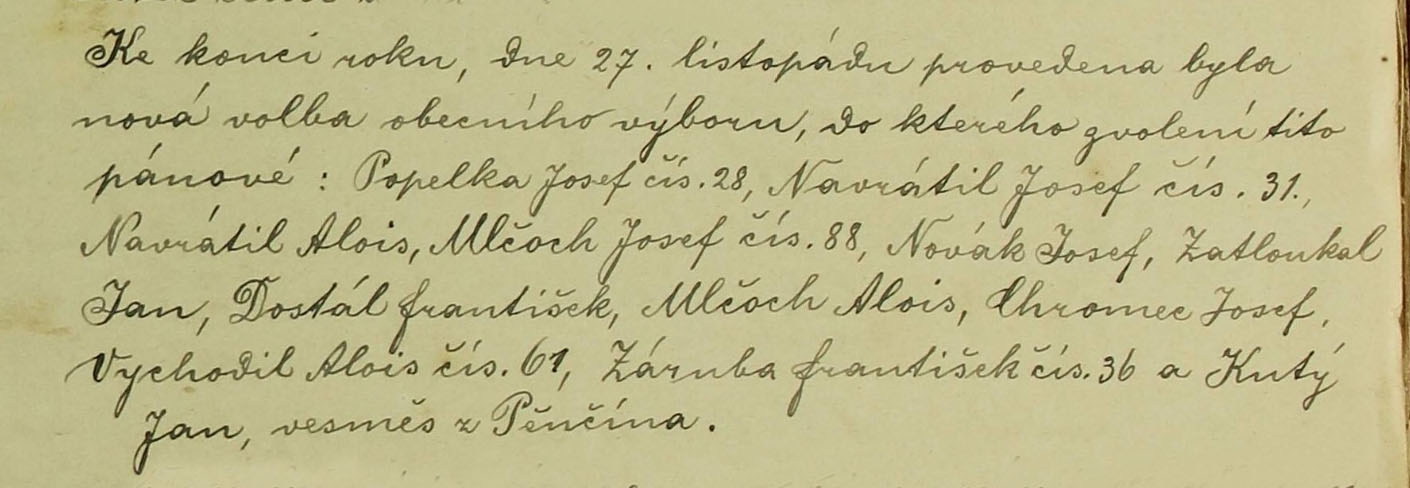 Ke konci roku, dne 27. listopádu provedena byla
nová volba obecního výboru, do kterého zvolení tito
pánové : Popelka Josef čís. 28, Navrátil Josef čís. 31.,
Navrátil Alois, Mlčoch Josef čís. 88, Novák Josef, Zatloukal
Jan, Dostál František, Mlčoch Alois, Chromec Josef,
Vychodil Alois čís. 61, Záruba František čís. 36 a Kutý
Jan, vesměs z Pěnčína.